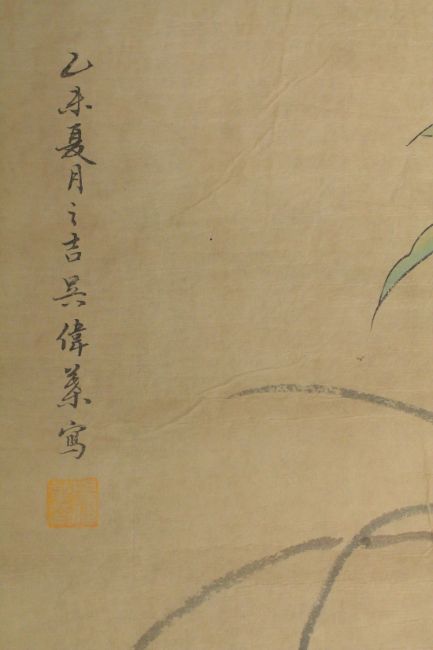 乙未夏月之吉吳偉業寫